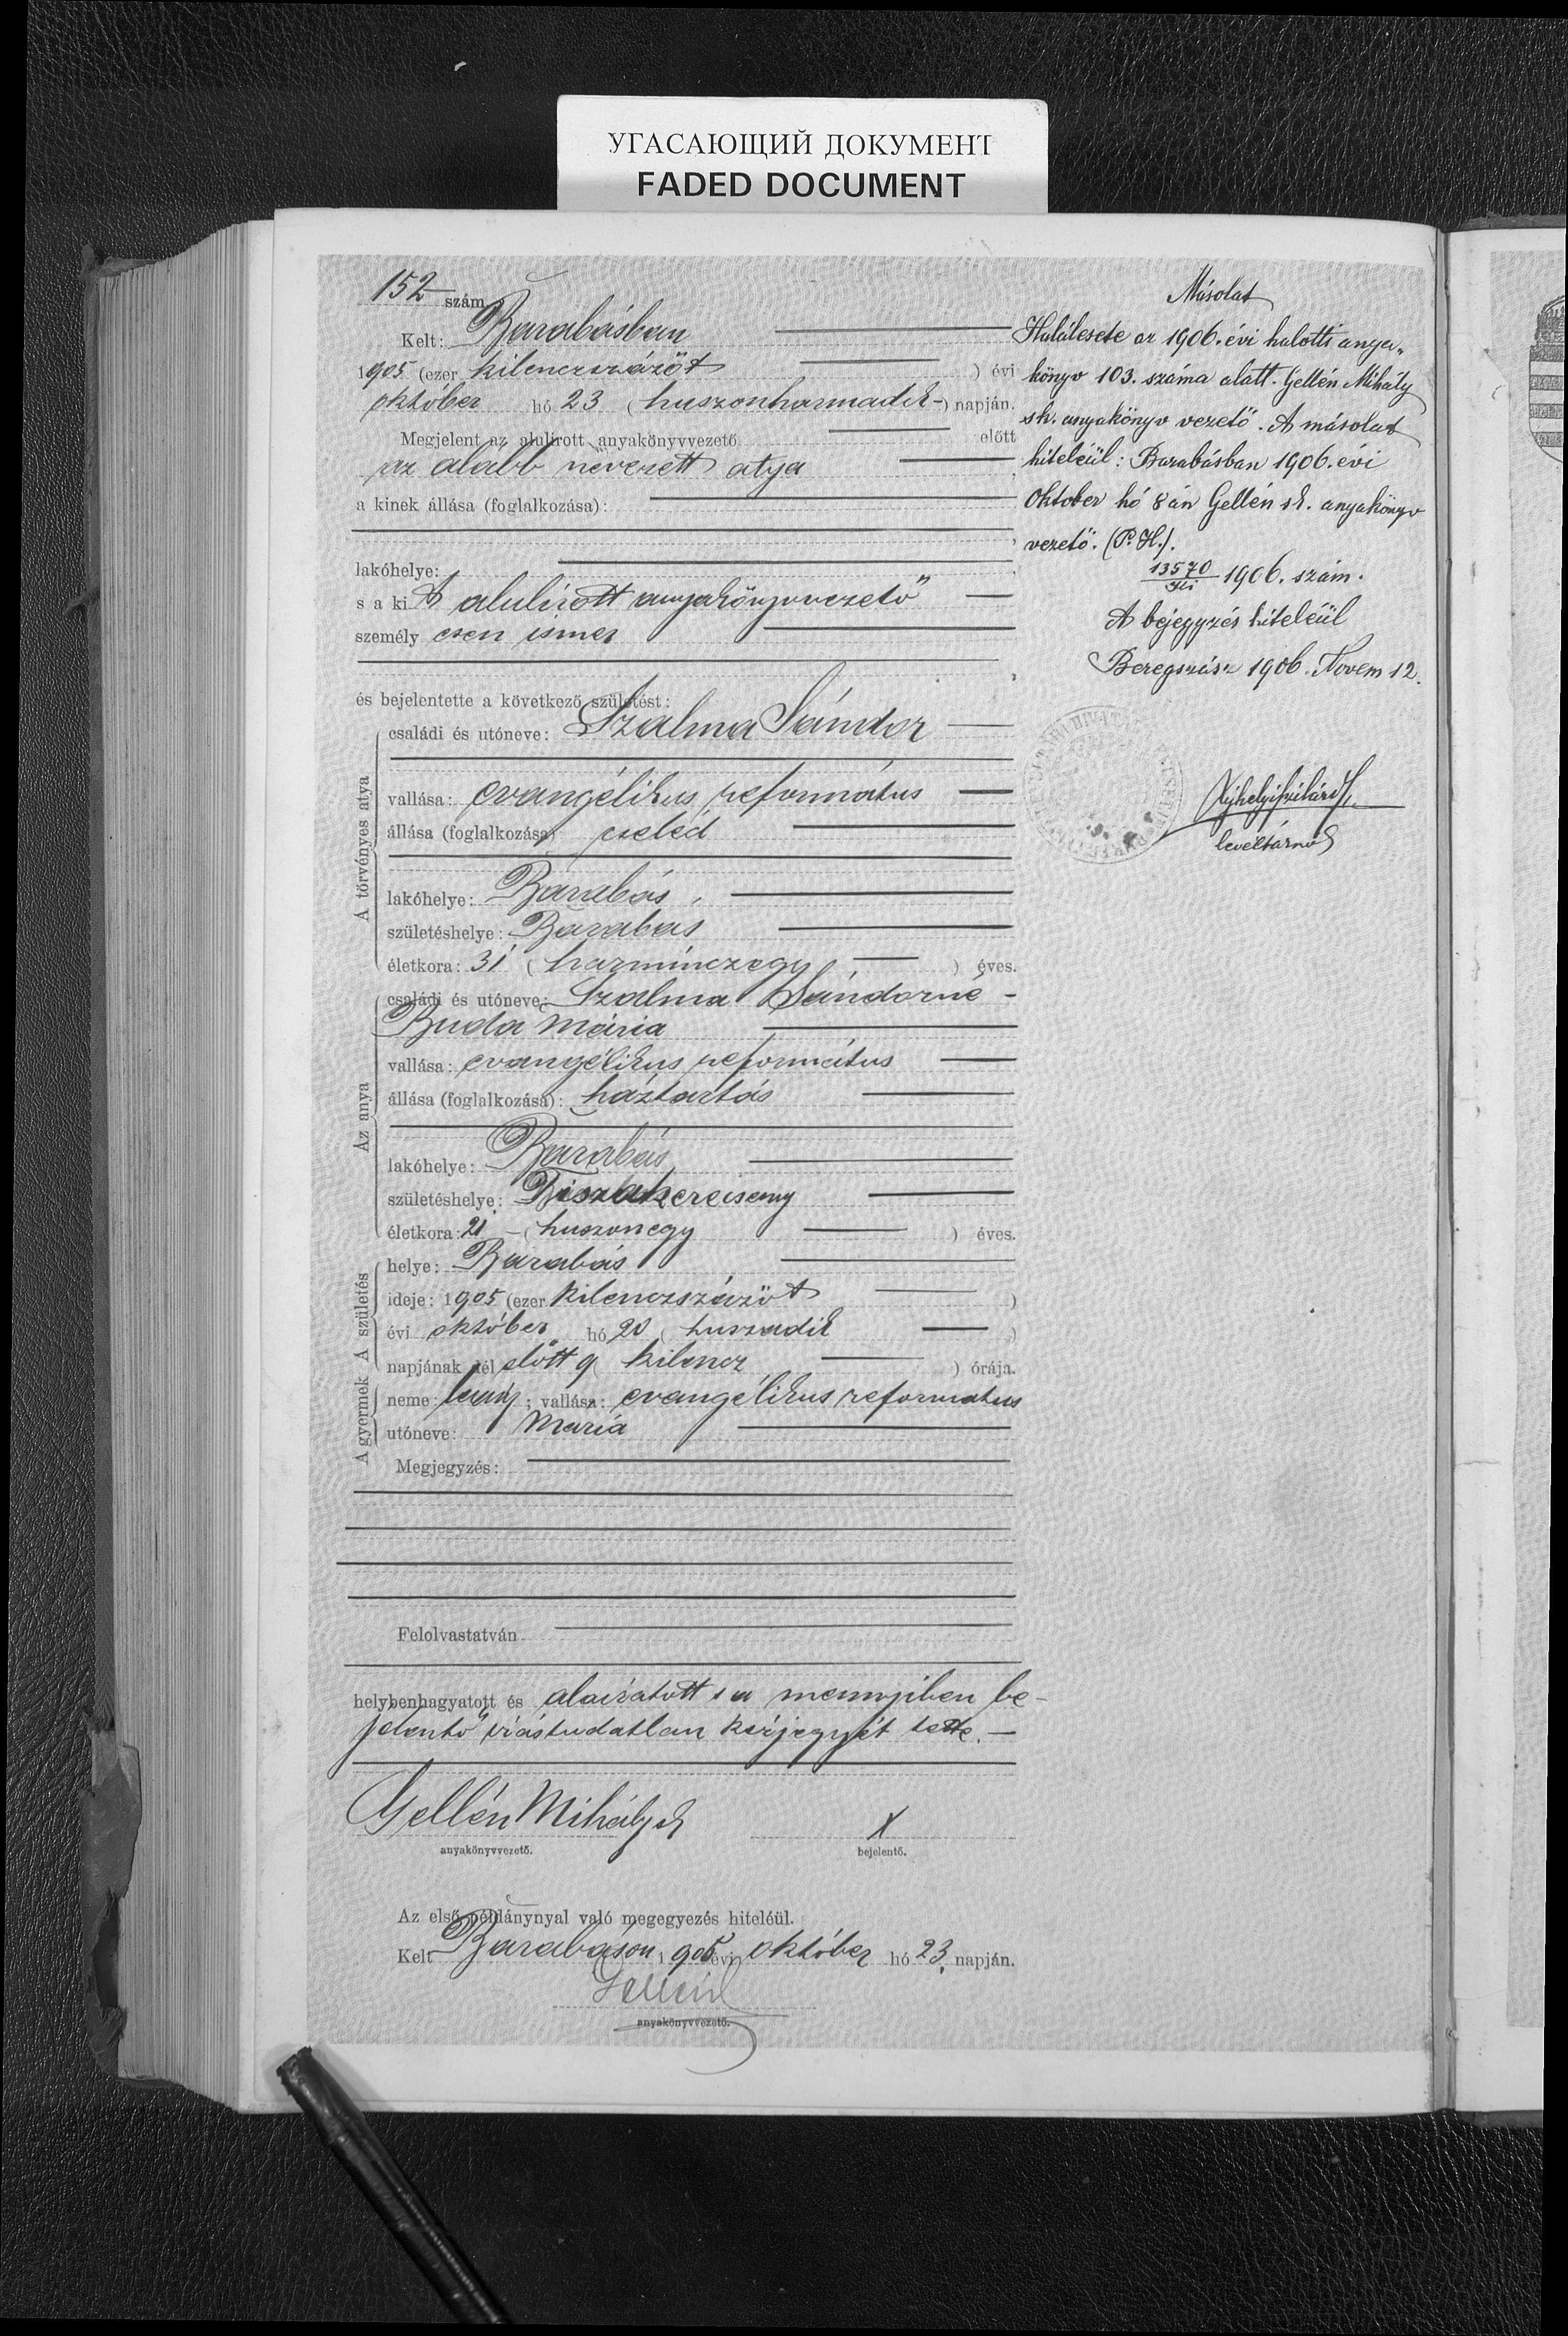 УГАСАЮЩИЙ ДОКУМЕНТ
FADED DOCUMENT
152 szám.
Kelt: Barabásban
1905 (ezer kilenczszázöt ) évi
október hó 23 (huszonharmadik-) napján.
Megjelent az alulirott anyakönyvvezető előtt
az alább nevezett atya
a kinek állása (foglalkozása):
lakóhelye:
s a kit alulirott anyakönyvvezető
személy esen ismer
és bejelentette a következő születést:
A törvényes atya
családi és utóneve: Szalma Sándor
vallása: evangélikus református
állása (foglalkozása): cseléd
lakóhelye: Barabás
születéshelye: Barabás
életkora: 31 (harminczegy ) éves.
Az anya
családi és utóneve: Szalma Sándorné -
Buda Mária
vallása: evangélikus református
állása (foglalkozása): háztartás
lakóhelye: Barabás
születéshelye: Tiszakerecseny
életkora: 21 - (huszonegy ) éves.
A születés
helye: Barabás
ideje: 1905 (ezer kilenczszázöt )
évi október hó 20 (huszadik )
napjának dél előtt 9 (kilencz ) órája.
A gyermek
neme: leány; vallása: evangélikus reformatus
utóneve: Mária
Megjegyzés:
Felolvastatván
helybenhagyatott és aláiratott s a mennyiben be-
jelentő irástudatlan kézjegyét tette. —
Gellén Mihály sk
anyakönyvvezető.
X
bejelentő.
Az első példánynyal való megegyezés hiteléül.
Kelt Barabáson 1905 évi október hó 23. napján.
Gellén
anyakönyvvezető.
Másolat
Halálesete az 1906. évi halotti anya-
könyv 103. száma alatt. Gellén Mihály
sk. anyakönyv vezető. A másolat
hiteléül: Barabásban 1906. évi
Október hó 8 án Gellén sk. anyakönyv
vezető. (P. H.).
13570
1906. szám.
A bejegyzés hiteléül
Beregszász 1906. Novem 12.
levéltárnok